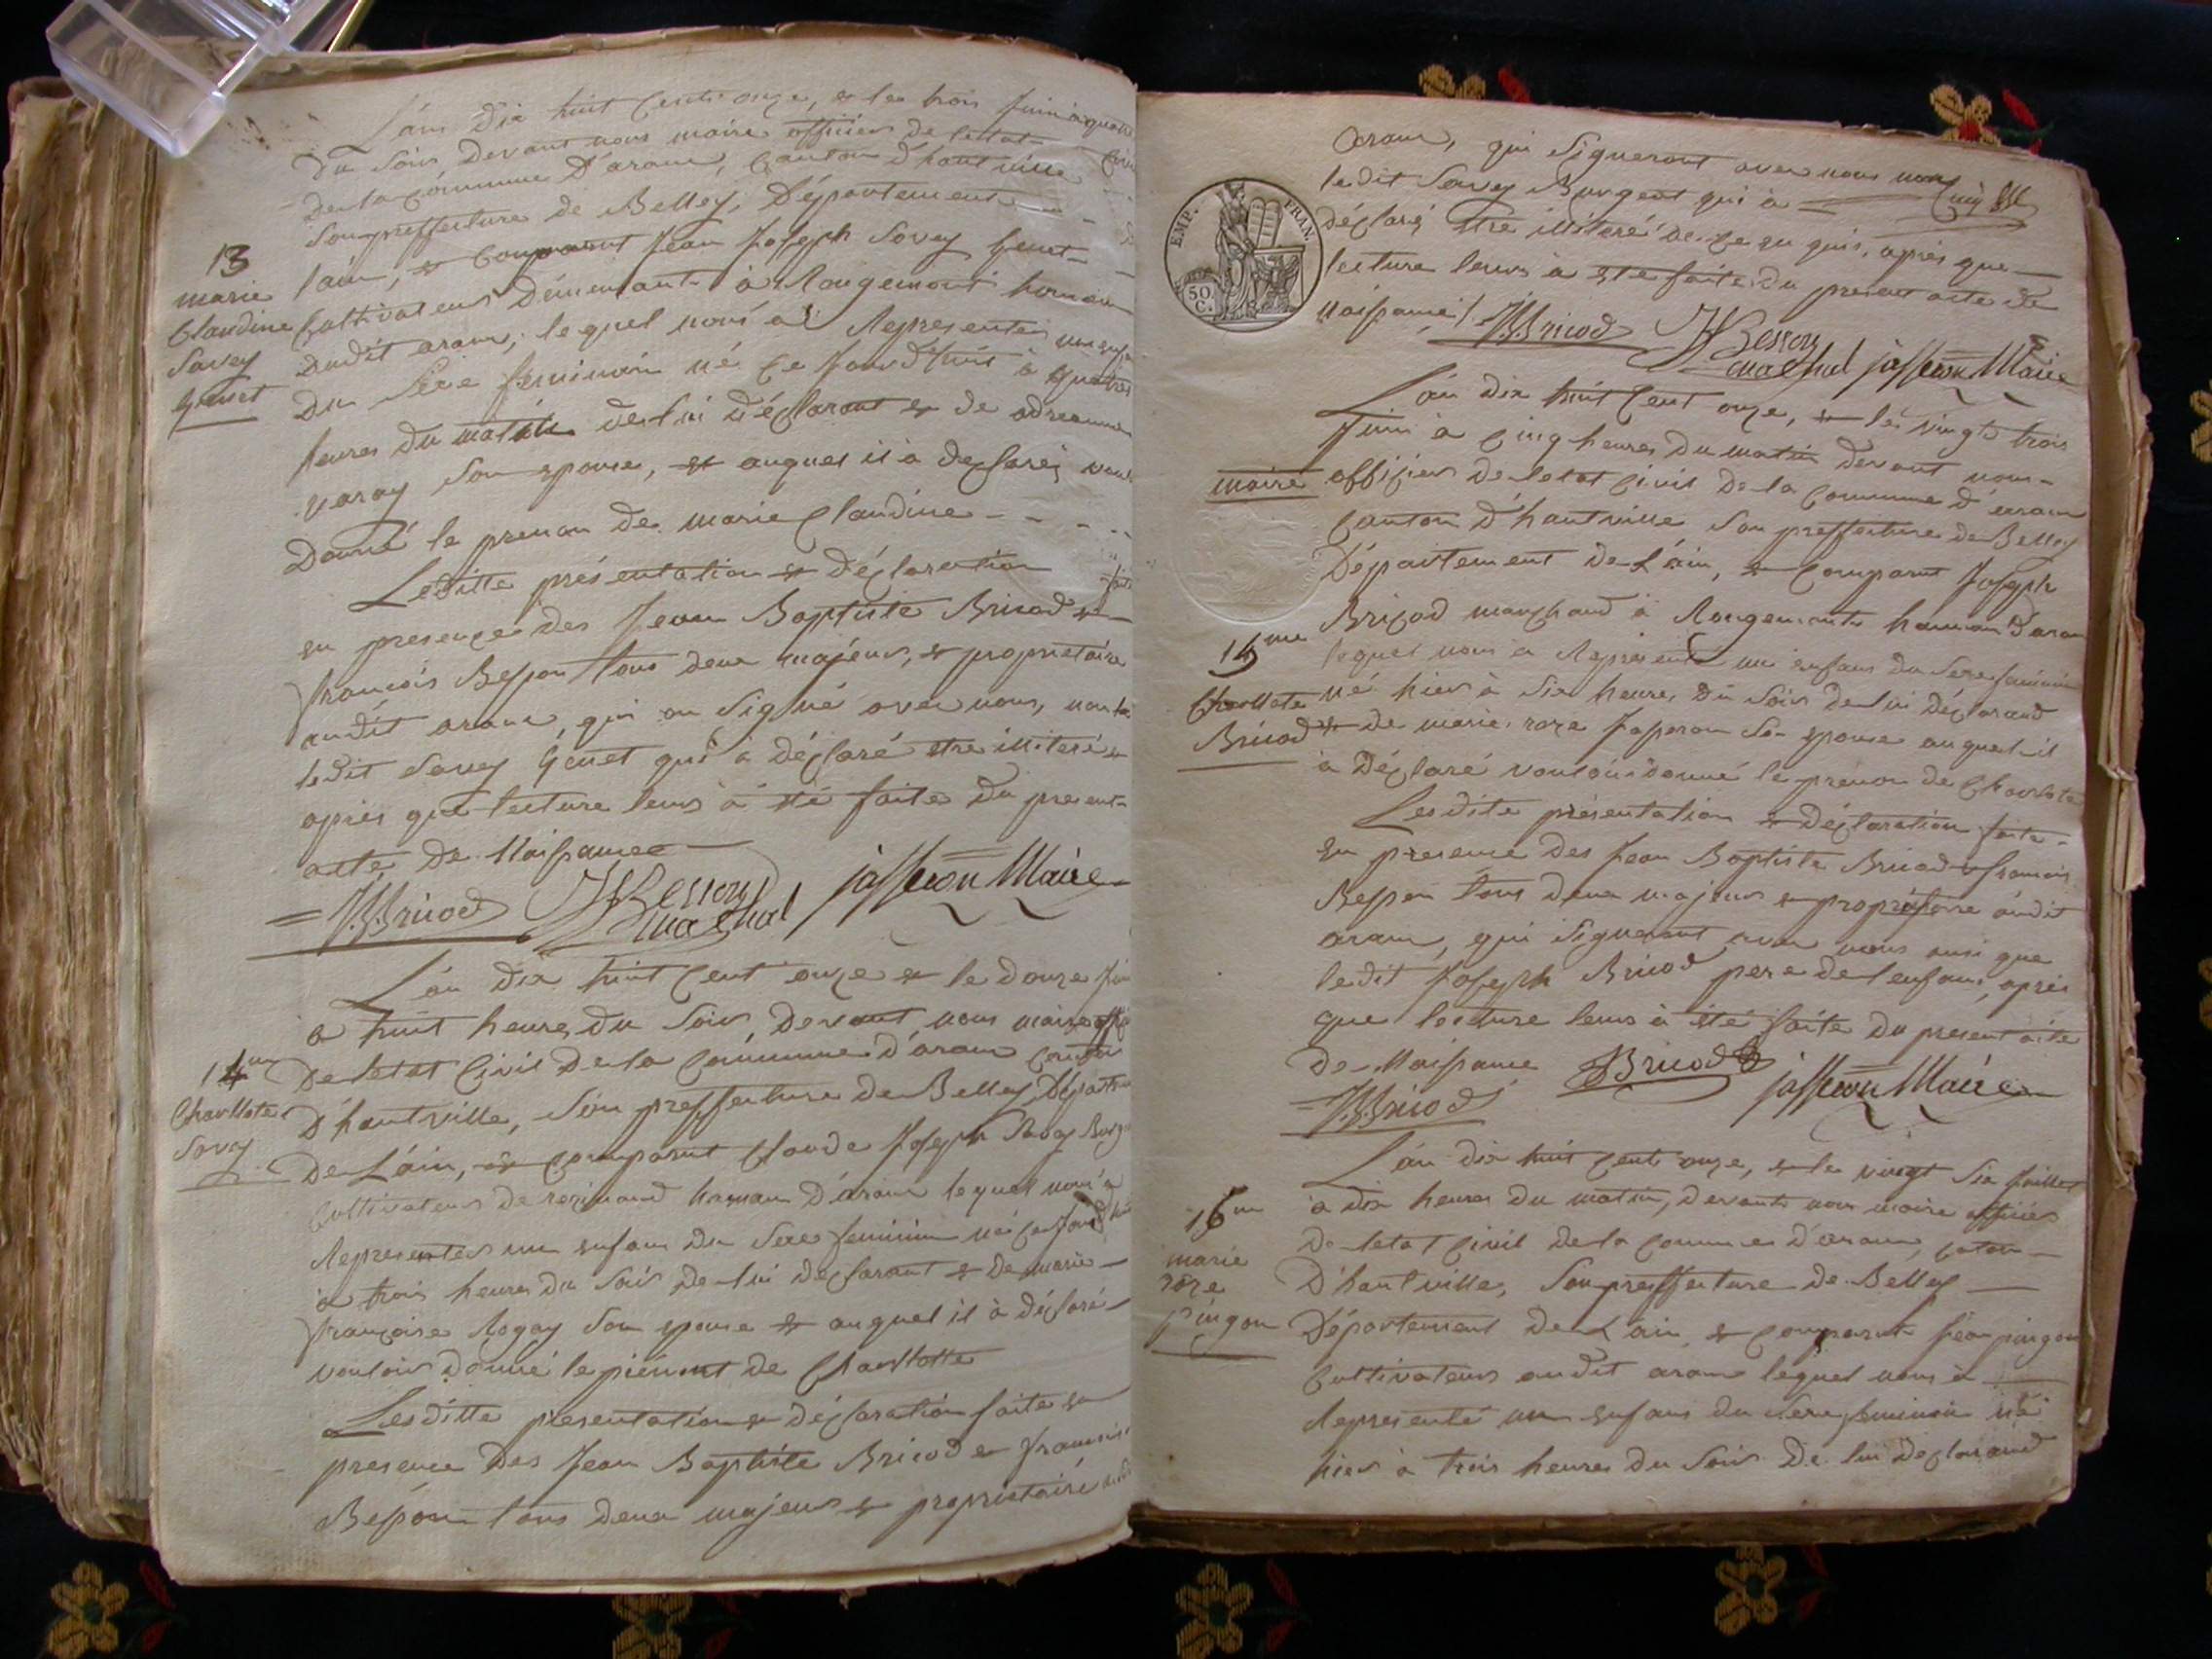 L'an dix huit cents onze, & le trois Juin à quatre
du soir devant nous maire officier de l'etat civil
de la commune D'aranc, canton d'hautville
souprefecture de Belley, Département de
13
marie
Claudine
Savey
Genet
lain, & comparut Jean Joseph Savey Genet
Cultivateur demeurant à Rougemont hameau
dudit aranc, lequel nous a Representer un enfan
du sexe feminin né ce jourd'huit à quatres
heures du matin de lui déclarant & de
varay son epouse, et auquel il à déclaré vouloir
Donné le prenom de marie Claudine
Leditte présentation & déclaration faite
en presence des Jean Baptiste Bricod &
françois Besson tous deux majeurs, & proprietaire
audit aranc, qui on signé avec nous, non
ledit Savey Genet qui à déclaré etre illiteré &
après que lecture leurs à été faite du present
acte de Naissance
JBBricod Besson jasseron Maire
L'an dix huit cent onze & le douze Juin
a huit heures du soir, devant nous maire offi
14me
Charllote
Savey
De letat civil de la commune d'aranc canton
D'hautville, sou preffecture de Belley, Départem
De Láin, & comparut Claude Joseph Savey Burge
Cultivateur de hameau D'aranc lequel nous a
Representer un enfans du sexe feminin né ce jourd'hui
à trois heures du soir de lui déclarant & de marie
françoise Rogay son epouse & auquel il à déclaré
vouloir donné le prénomt de Charllotte
Lesditte presentation & déclaration faite en
presence des Jean Baptiste Bricod & francois
Besson tous deux majeurs & proprietaire audit
aranc, qui signeront avec nous non
ledit Savey Burgeat qui à
EMP. FRAN.
50 C.
déclaré etre illiteré de ce en quis, après que
lecture leurs à ete faite du present acte de
naissance /. JBBricod Besson jasseron Maire
L'an dix huit cent onze, & le vingt trois
Juin à cinq heures du matin devant nous
maire officier de letat civil de la commune d'aranc
canton d'hautville sou preffecture de Belley
Département de Láin, & comparut Joseph
Bricod marchand à Rougemont hameau d'aranc
15me
Charllote
Bricod
lequel nous a Représenté un enfans du sexe feminin
né hier à six heures du soir de lui déclarand
& de marie roze Jasseron son epouse auquel il
à Déclaré vouloir donné le prénom de Charlote
Lesdite présentation & déclaration faite
en presence des Jean Baptiste Bricod & francois
Besson tous deux majeurs & propriétaire audit
aranc, qui signeront avec nous ensi que
ledit Joseph Bricod pere de lenfans, après
que lecture leurs à été faite du present acte
de Naissance Bricod
JBBricod jasseron Maire
L'an dix huit cents onze, & le vingt six Juillet
16me
marie
roze
pingon
à dix heures du matin, devant nous maire officier
De letat civil de la commune d'aranc, caton
D'hautville, sou preffecture de Belley
Département de Láin & comparut Jean pingon
Cultivateur audit aranc lequel nous à
Representé un enfans du sexe feminin né
hier à trois heures du soir de lui declarand